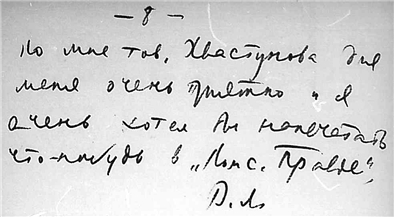 — 8 —
ко мне тов. Хвастунова для
меня очень приятно и я
очень хотел бы напечатать
что-нибудь в „Комс. Правде“,